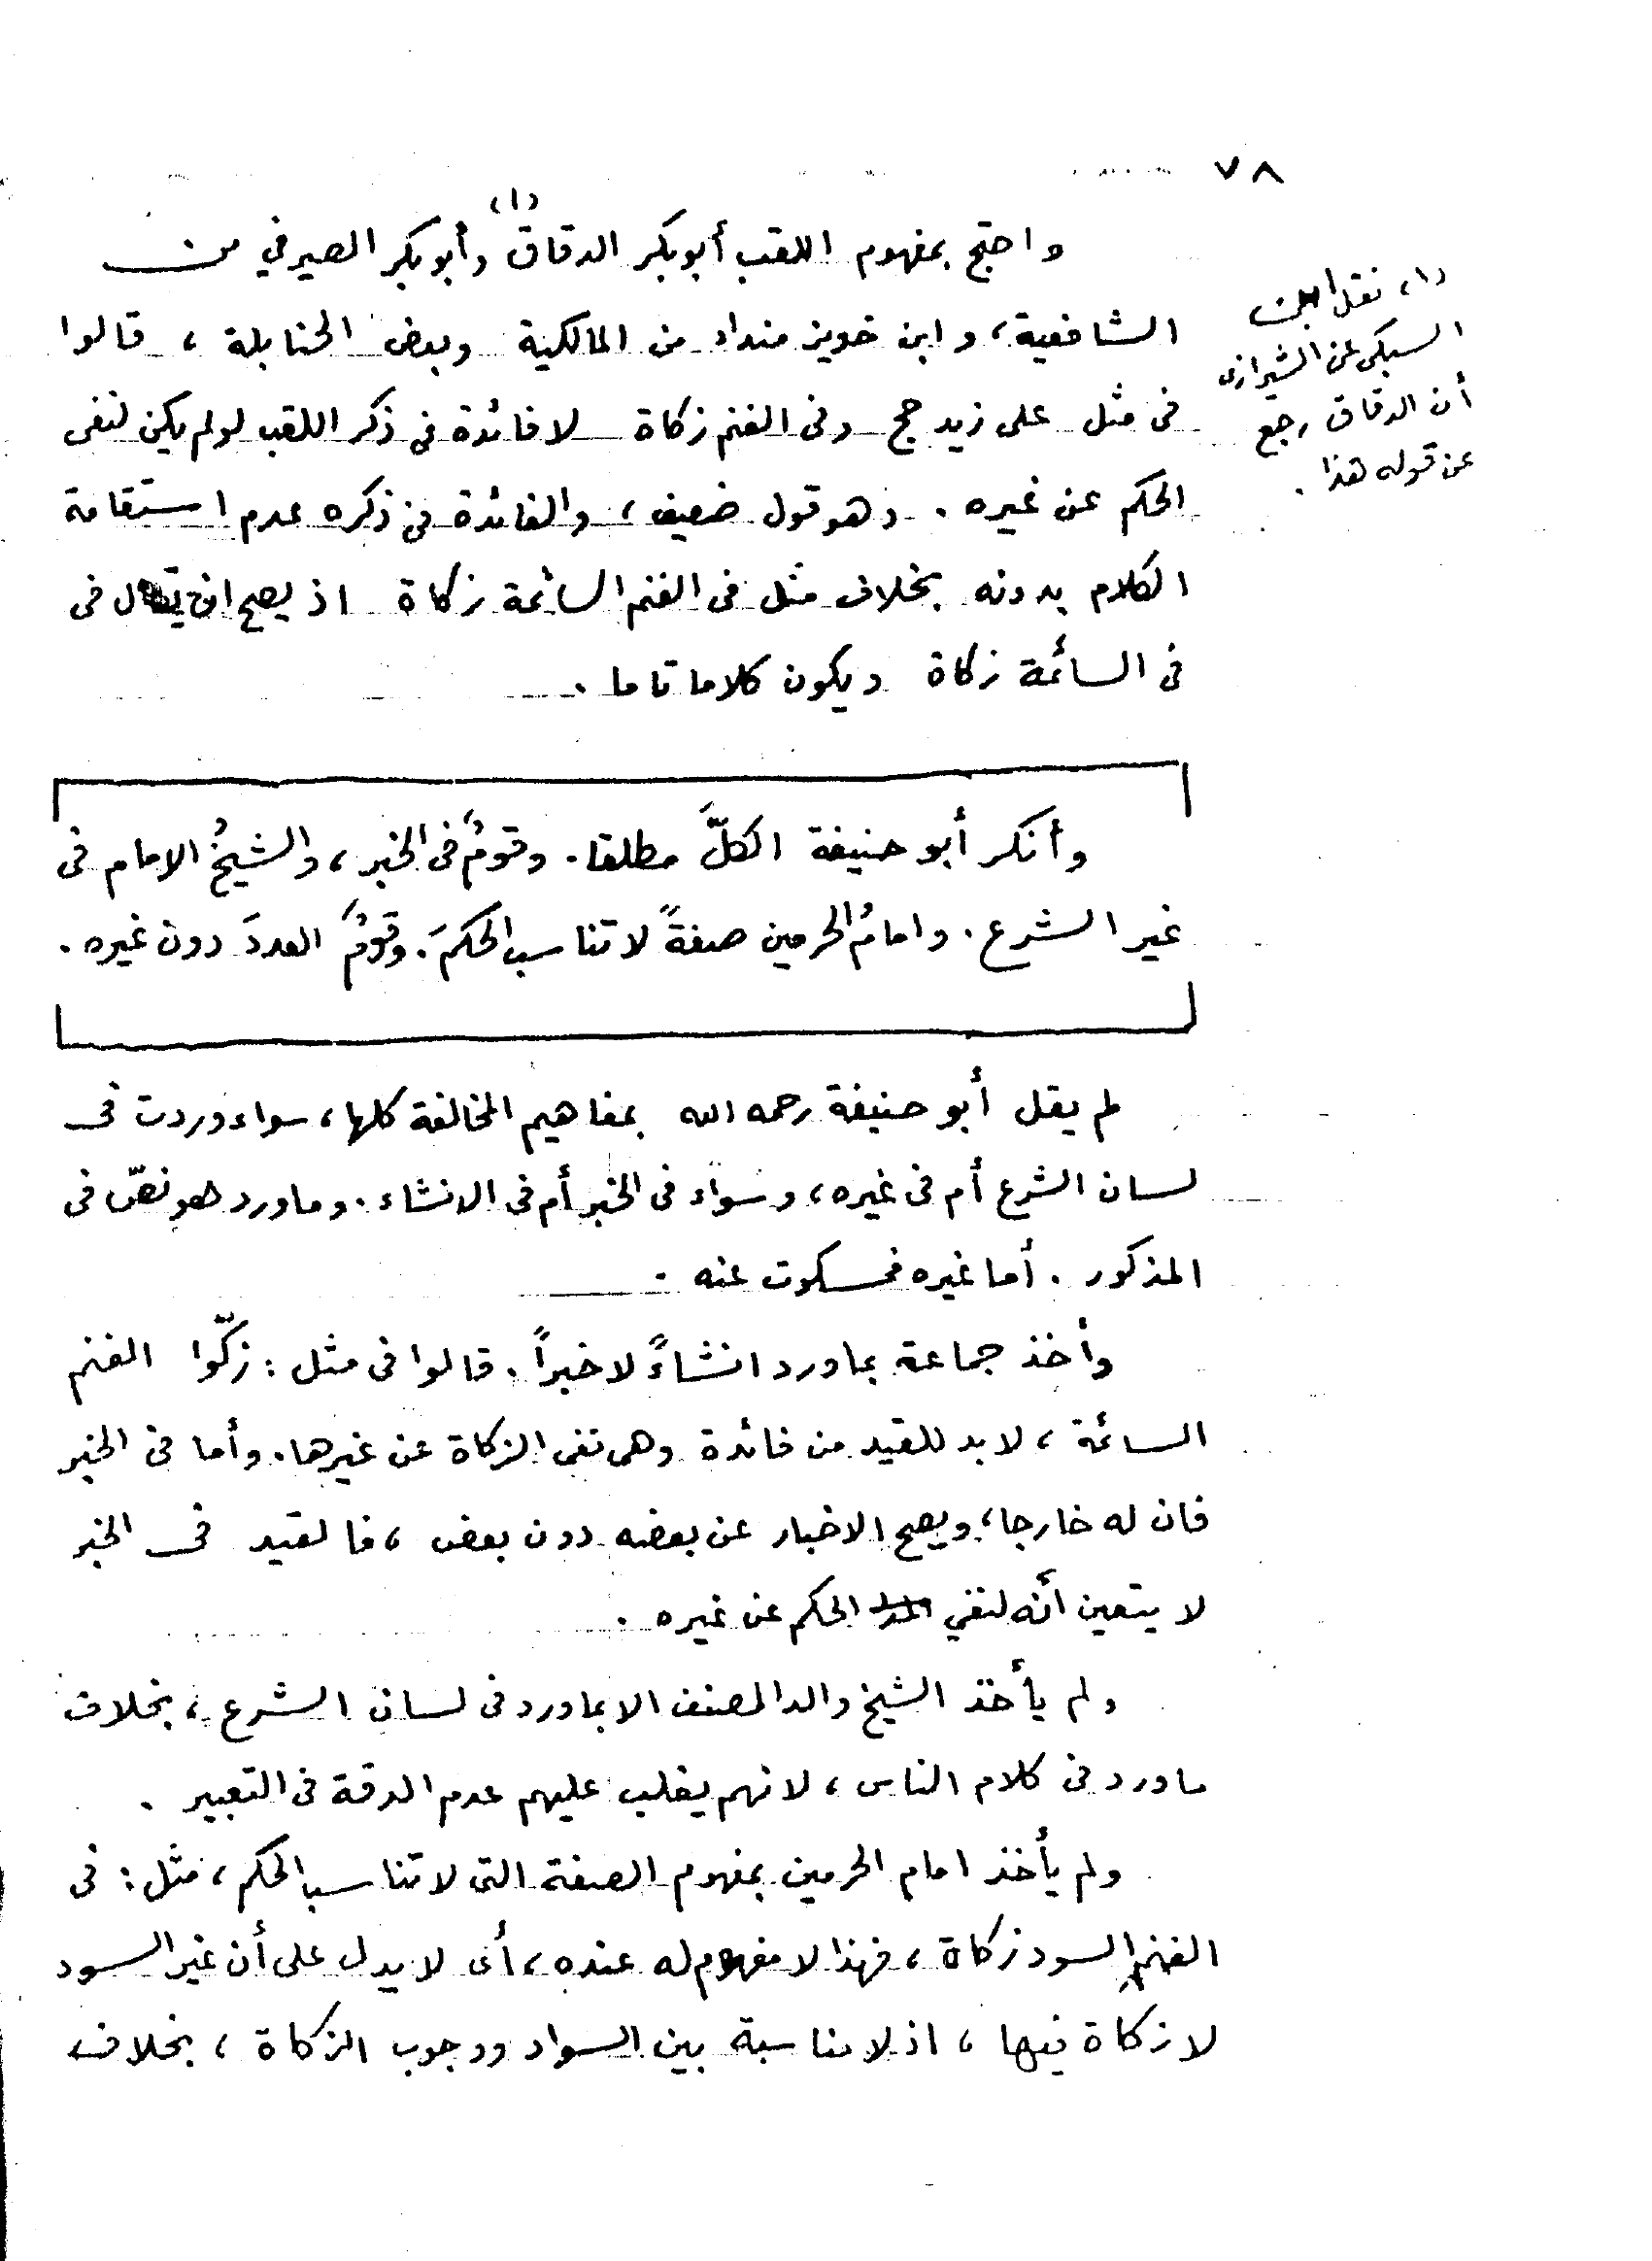 ٧٨
واحتج بمفهوم اللقب أبوبكر الدقاق (١) وأبوبكر الصيرفي من
الشافعية، وابن خويز منداد من المالكية وبعض الحنابلة، قالوا
فى مثل على زيد حج وفى الغنم زكاة لا فائدة فى ذكر اللقب لو لم يكن لنفى
الحكم عن غيره. وهو قول ضعيف، والفائدة فى ذكره عدم استقامة
الكلام بدونه بخلاف مثل فى الغنم السائمة زكاة اذ يصح ان يقال فى
فى السائمة زكاة ويكون كلاما تاما.
(١) نقل ابن
السبكى عن الشيرازى
أن الدقاق رجع
عن قوله هذا.
وأنكر أبو حنيفة الكلَّ مطلقا. وقومٌ فى الخبر، والشيخُ الامام فى
غير الشرع. وامامُ الحرمين صفةً لا تناسب الحكمَ. وقومٌ العددَ دون غيره.
لم يقل أبو حنيفة رحمه الله بمفاهيم المخالفة كلها، سواء وردت فى
لسان الشرع أم فى غيره، وسواء فى الخبر أم فى الانشاء. وما ورد هو نصّ فى
المذكور. أما غيره فمسكوت عنه.
وأخذ جماعة بما ورد انشاءً لا خبراً. قالوا فى مثل: زكّوا الغنم
السائمة، لا بد للقيد من فائدة وهى نفى الزكاة عن غيرها. وأما فى الخبر
فان له خارجا، ويصح الاخبار عن بعضه دون بعض، فالقيد فى الخبر
لا يتعين أنه لنفي الحكم عن غيره.
ولم يأخذ الشيخ والد المصنف الا بما ورد فى لسان الشرع، بخلاف
ما ورد فى كلام الناس، لانهم يغلب عليهم عدم الدقة فى التعبير.
ولم يأخذ امام الحرمين بمفهوم الصفة التى لا تناسب الحكم، مثل: فى
الغنم السود زكاة، فهذا لا مفهوم له عنده، أى لا يدل على أن غير السود
لا زكاة فيها، اذ لا مناسبة بين السواد ووجوب الزكاة، بخلاف